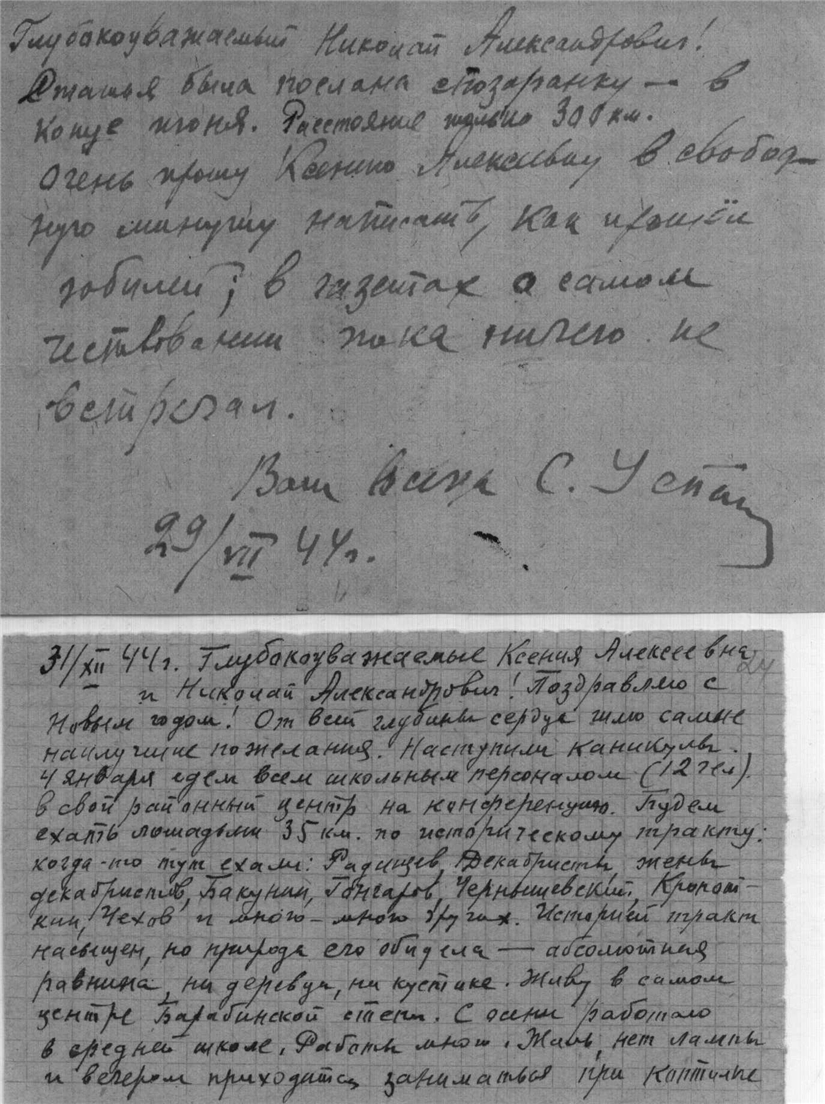 Глубокоуважаемый Николай Александрович!
Статья была послана спозаранку — в
конце июня. Расстояние только 300 км.
Очень прошу Ксению Алексеевну в свобод-
ную минуту написать, как прошёл
юбилей; в газетах о самом
чествовании пока ничего не
встречал.
Ваш С. Успен
29/VII 44г.
31/XII 44г. Глубокоуважаемые Ксения Алексеевна
24
и Николай Александрович! Поздравляю с
Новым годом! От всей глубины сердца шлю самые
наилучшие пожелания. Наступили каникулы.
4 января едем всем школьным персоналом (12 чел).
в свой районный центр на конференцию. Будем
ехать лошадьми 35 км. по историческому тракту:
когда-то тут ехали: Радищев, Декабристы, жены
декабристов, Бакунин, Гончаров, Чернышевский, Кропот-
кин, Чехов и много-много других. Историей тракт
насыщен, но природа его обидела — абсолютная
равнина, ни деревца, ни кустика. Живу в самом
центре Барабинской степи. С осени работаю
в средней школе. Работы много. Жаль, нет лампы
и вечером приходится заниматься при коптилке